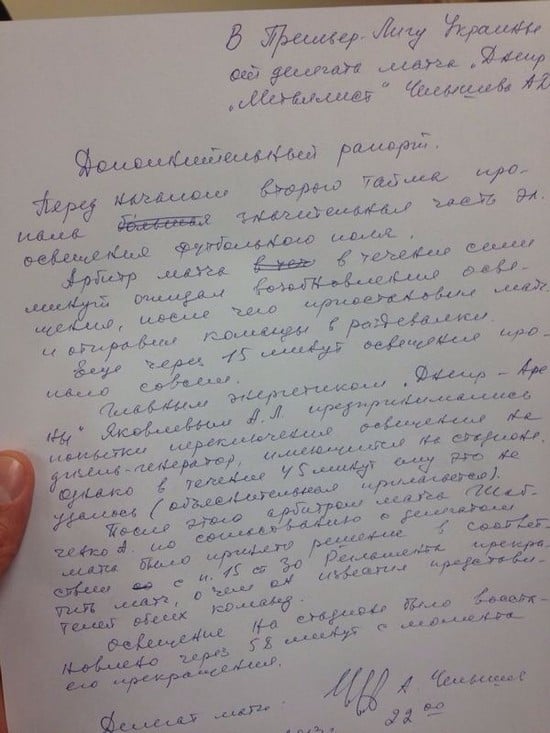 В Премьер-Лигу Украины
от делегата матча „Днепр
„Металлист“ Чепышева А.Д
Дополнительный рапорт.
Перед началом второго тайма про-
пала большая значительная часть эл.
освещения футбольного поля.
Арбитр матча в течение семи
минут ожидал возобновления осве-
щения, после чего приостановил матч
и отправил команды в раздевалки.
Еще через 15 минут освещение про-
пало совсем.
Главным энергетиком „Днепр-Аре
ны“ Яковлевым А.Л. предпринимались
попытки переключения освещения на
дизель-генератор, имеющийся на стадионе.
однако в течение 45 минут ему это не
удалось (объяснительная прилагается).
После этого арбитром матча Шаб-
ченко А. по согласованию с делегатом
матча было принято решение в соответ-
ствии с п. 15 ст 30 Регламента прекра-
тить матч, о чем он известил представи-
телей обеих команд.
Освещение на стадионе было восста-
новлено через 58 минут с момента
его прекращения.
Делегат матча: А. Чепышев
22 00